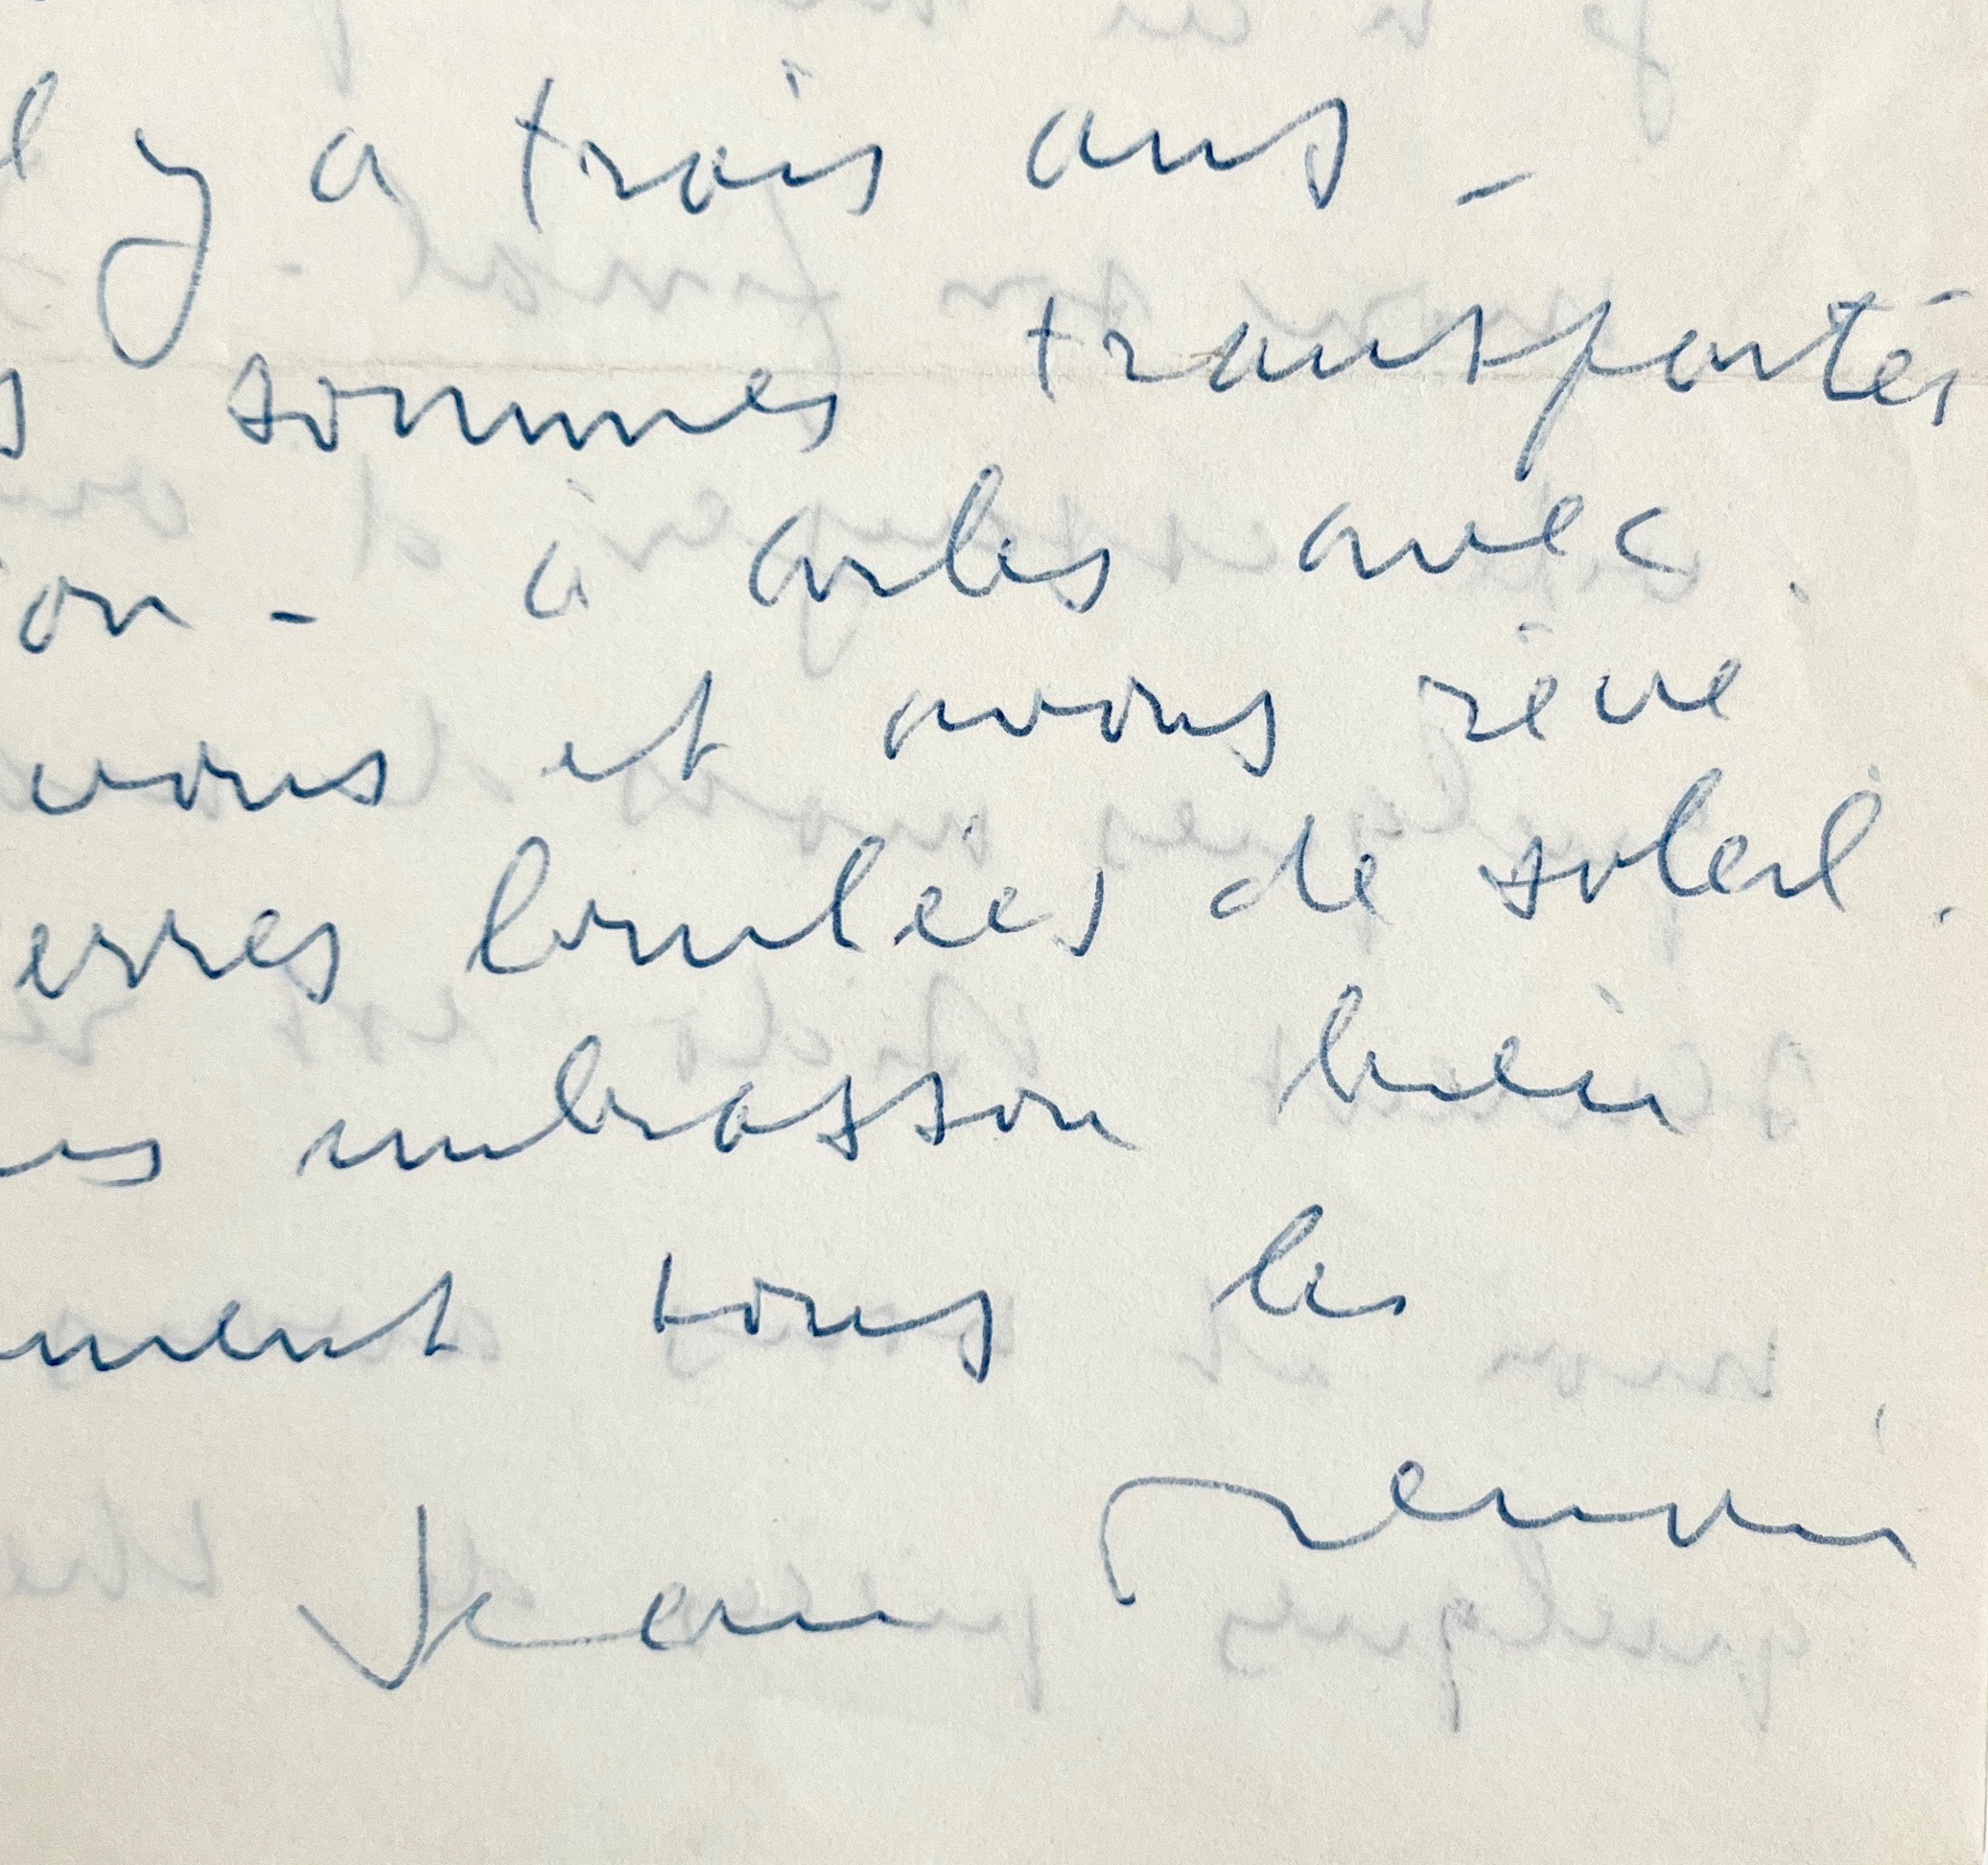 l y a trois ans -
s sommes transportés
ion - à arles avec
vous et avons rêvé
erres brulées de soleil.
us embrasson bien
ment tous les
Jean Renoir